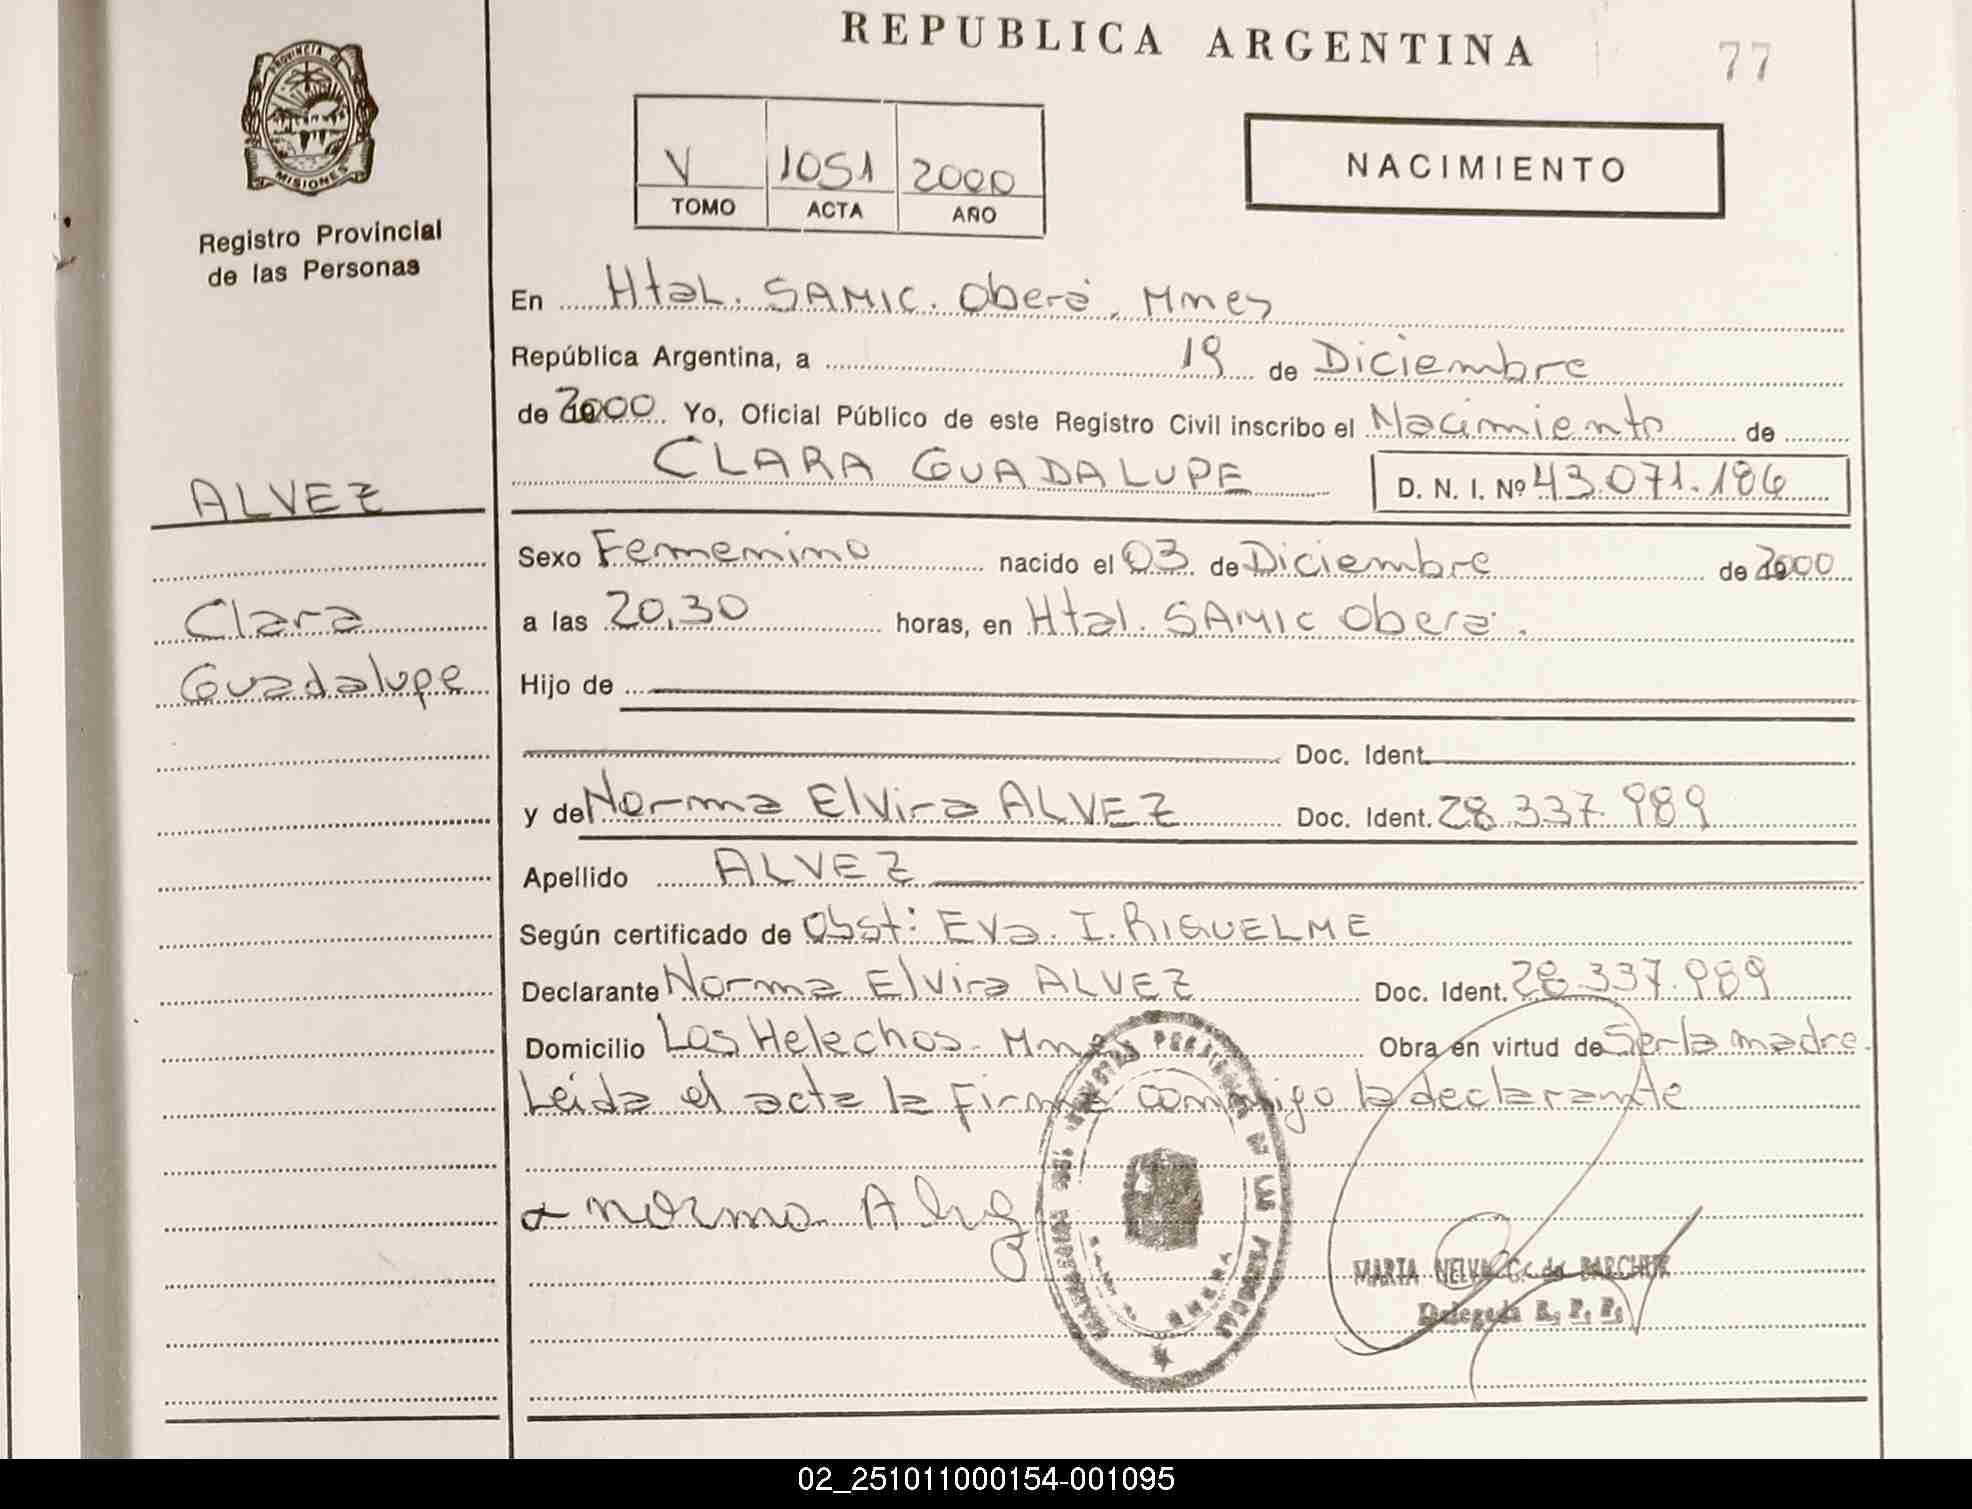 REPUBLICA ARGENTINA
77
PROVINCIA DE
MISIONES
Registro Provincial
de las Personas
V 1051 2000
TOMO ACTA AÑO
NACIMIENTO
En Htal. SAMIC. Oberá, Mnes
República Argentina, a 19 de Diciembre
de 2000 Yo, Oficial Público de este Registro Civil inscribo el Nacimiento de
CLARA GUADALUPE D. N. I. Nº 43.071.186
ALVEZ
Clara
Guadalupe
Sexo Femenino nacido el 03 de Diciembre de 2000
a las 20,30 horas, en Htal. SAMIC Oberá.
Hijo de
Doc. Ident.
y de Norma Elvira ALVEZ Doc. Ident. 28.337.989
Apellido ALVEZ
Según certificado de Obst: Eva. I. RIQUELME
Declarante Norma Elvira ALVEZ Doc. Ident. 28.337.989
Domicilio Los Helechos. Mnes Obra en virtud de Ser la madre.
Leída el acta la firma conmigo la declarante
norma
MARTA NELVA G. de
Delegada R. P. P.
02_251011000154-001095